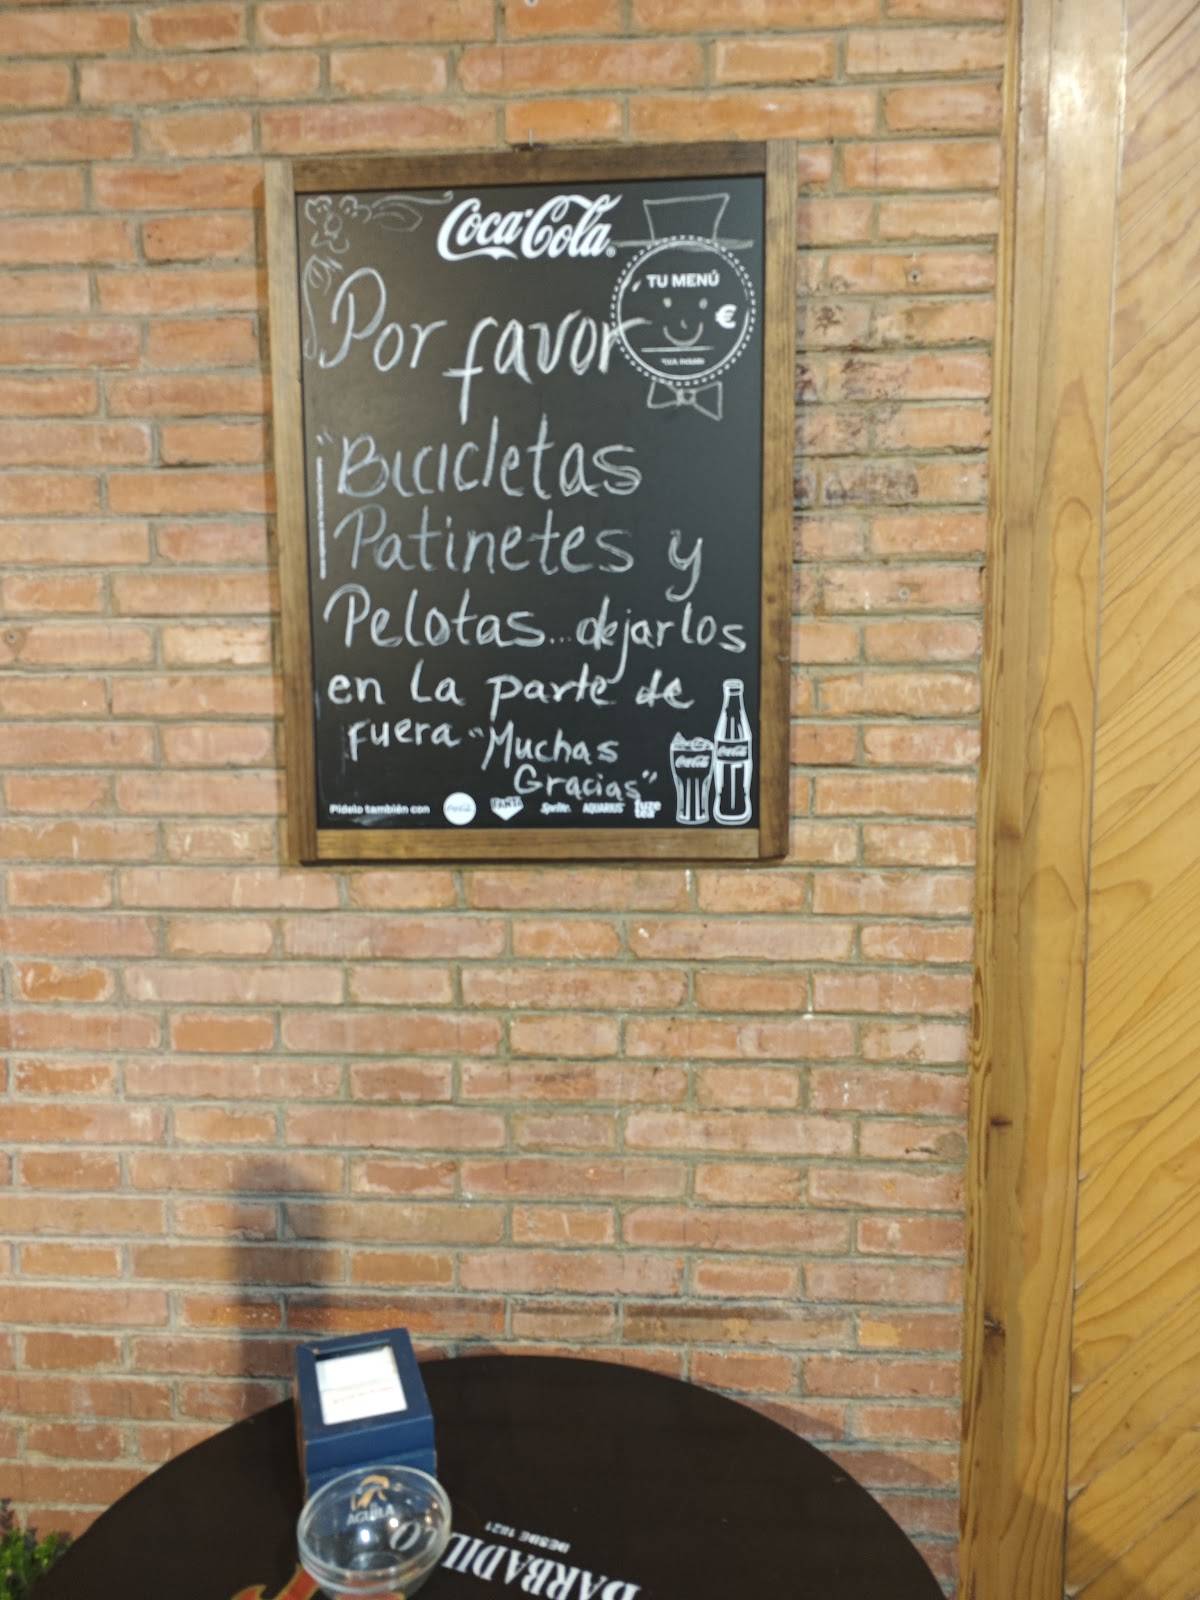 Coca-Cola
TU MENÚ
€
Por favor
"Bicicletas
Patinetes y
Pelotas... dejarlos
en la parte de
fuera "Muchas
Gracias"
Coca-Cola
Coca-Cola
Pídelo también con
Coca-Cola
FANTA
Sprite
AQUARIUS
fuze tea
AGUILA
DESDE 1821
BARBADILLO